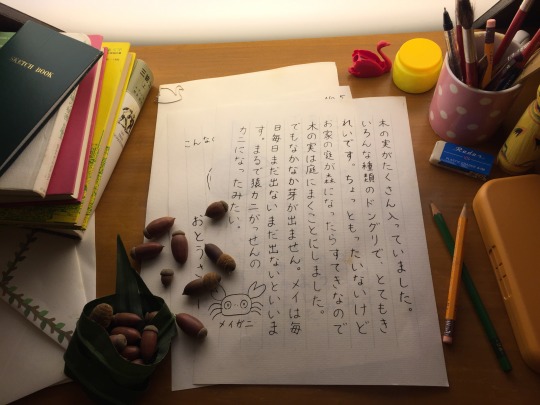 木の実がたくさん入っていました。
いろんな種類のドングリで、とてもき
れいです。ちょっともったいないけど
お家の庭が森になったらすてきなので
木の実は庭にまくことにしました。
でもなかなか芽が出ません。メイは毎
日毎日まだ出ないまだ出ないといいま
す。まるで猿カニがっせんの
カニになったみたい。
おとうさ
こんな
メイガニ
SKETCH BOOK